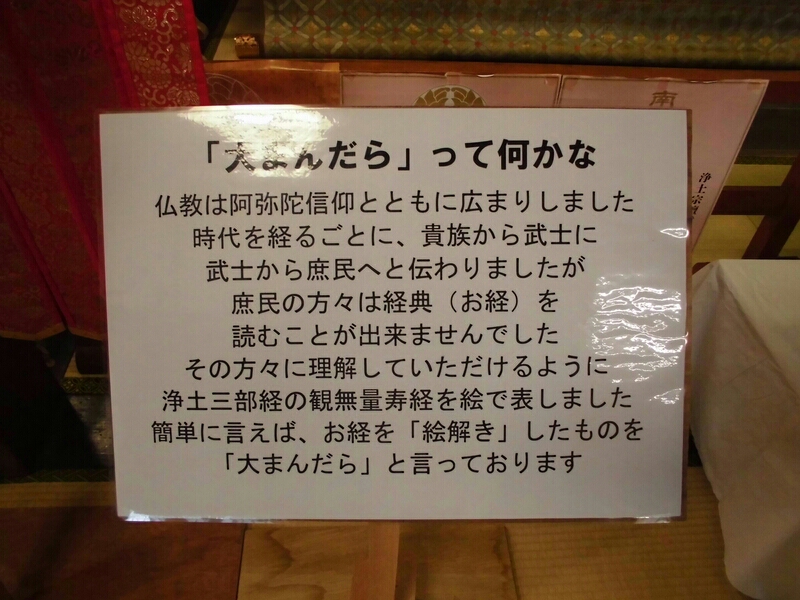 「大まんだら」って何かな
仏教は阿弥陀信仰とともに広まりしました
時代を経るごとに、貴族から武士に
武士から庶民へと伝わりましたが
庶民の方々は経典（お経）を
読むことが出来ませんでした
その方々に理解していただけるように
浄土三部経の観無量寿経を絵で表しました
簡単に言えば、お経を「絵解き」したものを
「大まんだら」と言っております
南
浄土宗